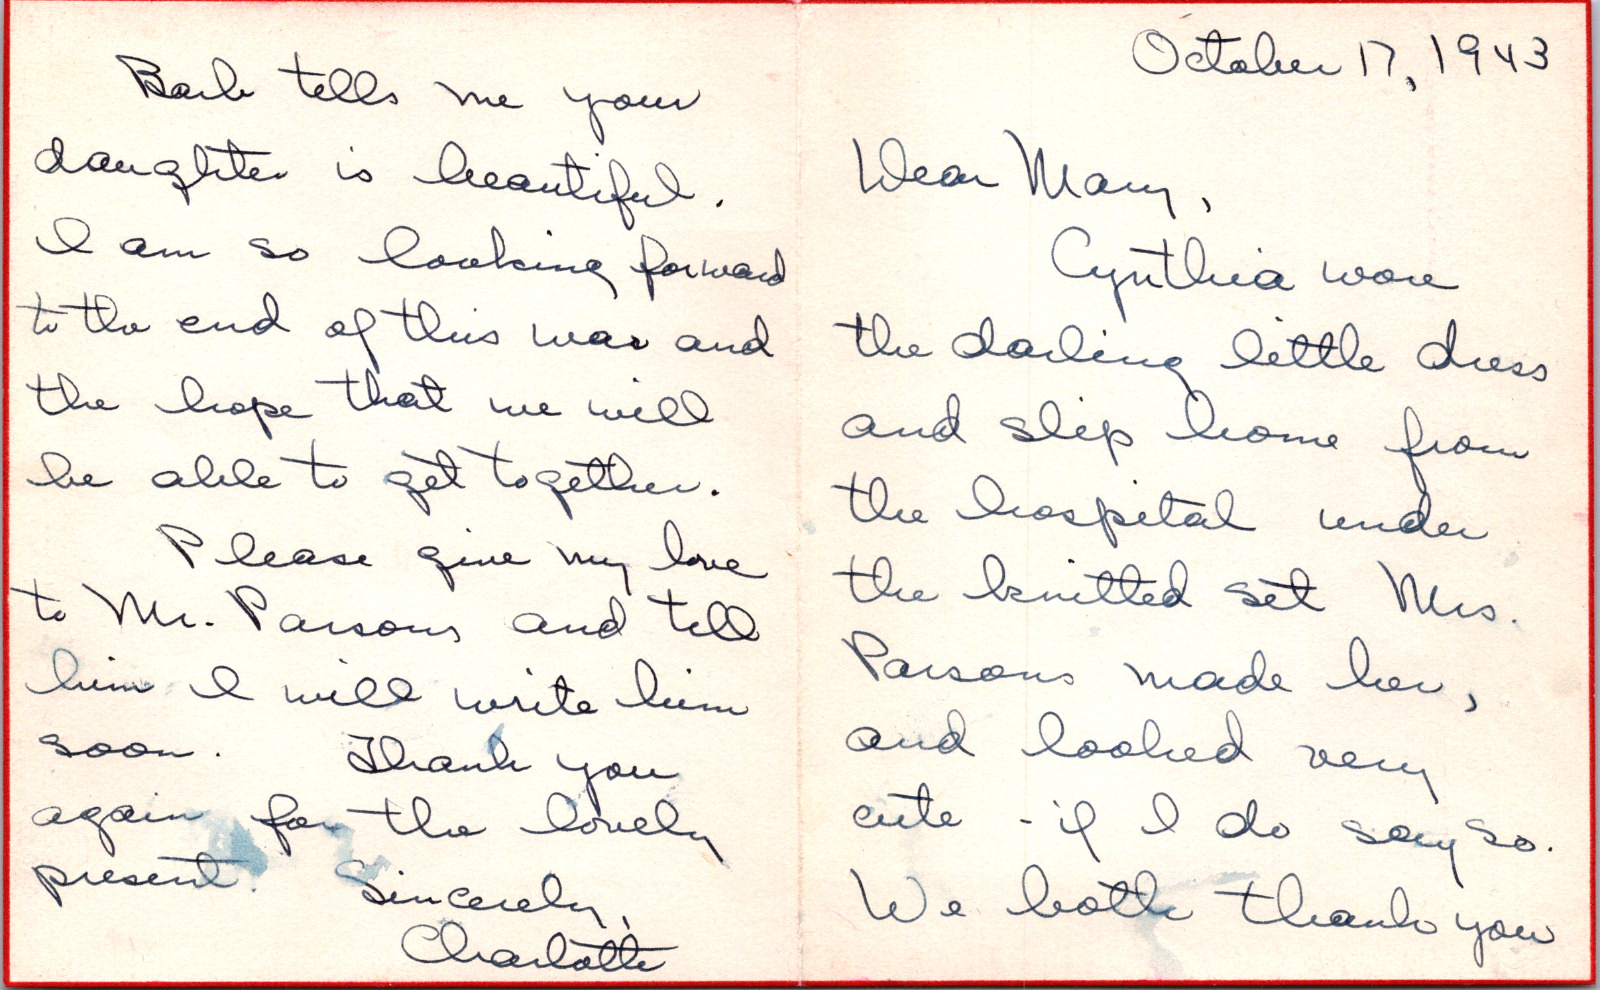 October 17, 1943
Dear Mary,
Cynthia wore
the darling little dress
and slip home from
the hospital under
the knitted set Mrs.
Parsons made her,
and looked very
cute - if I do say so.
We both thank you
Barb tells me your
daughter is beautiful.
I am so looking forward
to the end of this war and
the hope that we will
be able to get together.
Please give my love
to Mr. Parsons and tell
him I will write him
soon. Thank you
again for the lovely
present. Sincerely,
Charlotte